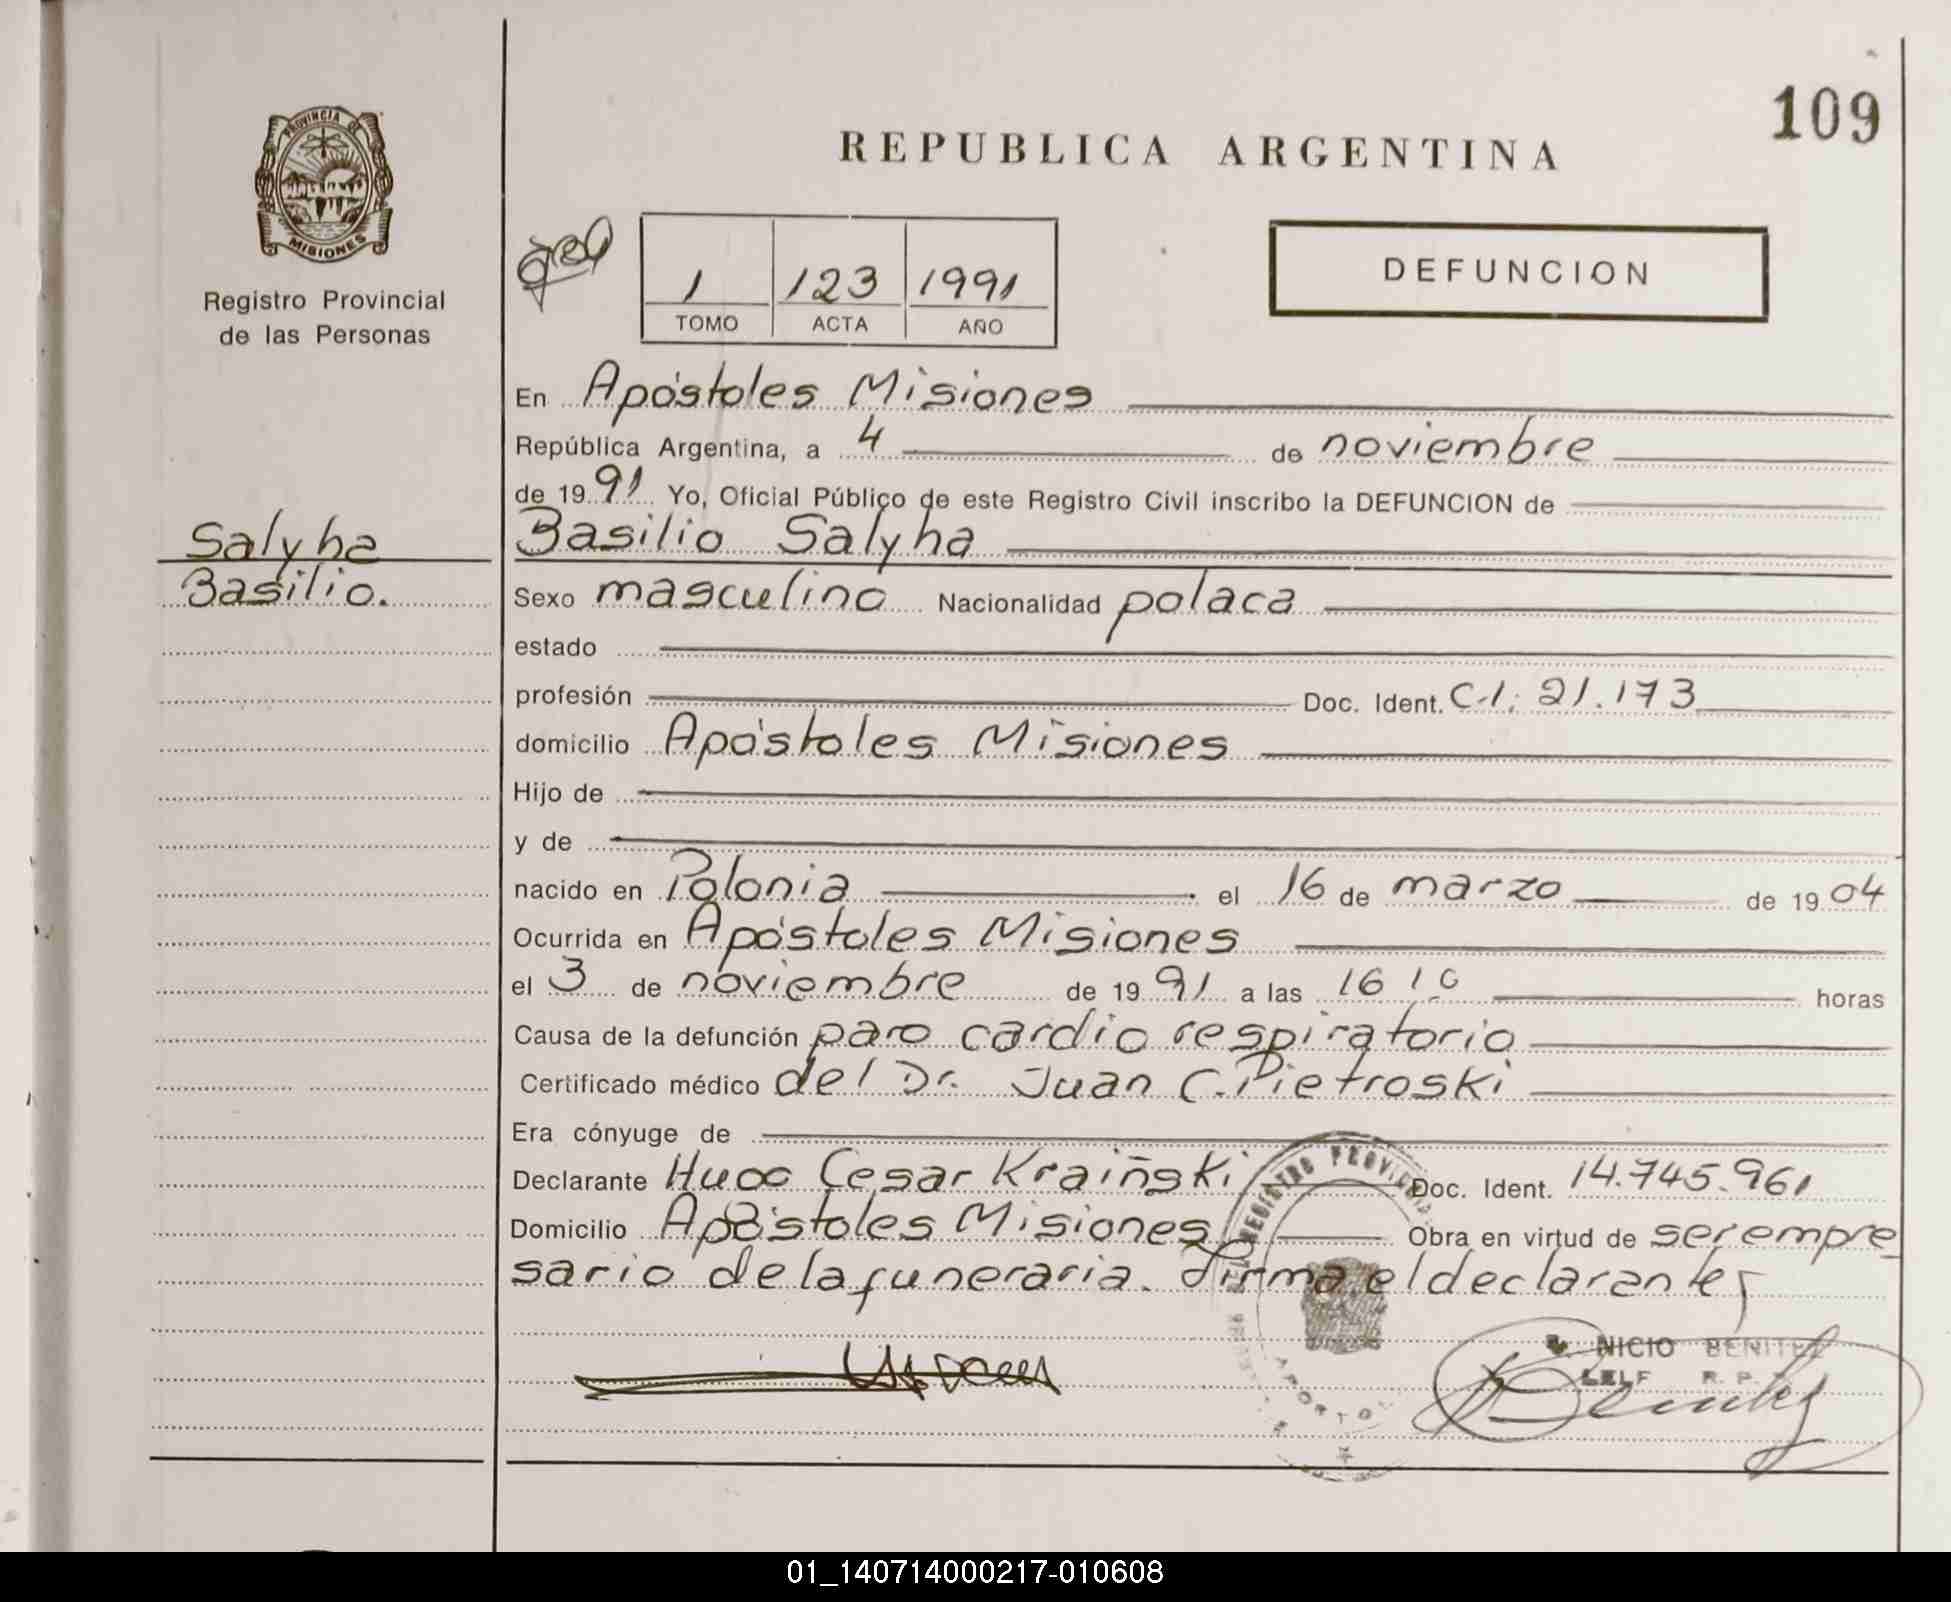 109
REPUBLICA ARGENTINA
PROVINCIA DE
MISIONES
Registro Provincial
de las Personas
1 123 1991
TOMO ACTA AÑO
DEFUNCION
En Apóstoles Misiones
República Argentina, a 4 de noviembre
de 1991 Yo, Oficial Público de este Registro Civil inscribo la DEFUNCION de
Salyha
Basilio.
Basilio Salyha
Sexo masculino Nacionalidad polaca
estado
profesión Doc. Ident. C.I: 21.173
domicilio Apóstoles Misiones
Hijo de
y de
nacido en Polonia el 16 de marzo de 1904
Ocurrida en Apóstoles Misiones
el 3 de noviembre de 1991 a las 16 10 horas
Causa de la defunción paro cardio respiratorio
Certificado médico del Dr. Juan C. Pietroski
Era cónyuge de
Declarante Hugo Cesar Kraiñski Doc. Ident. 14.745.961
Domicilio Apóstoles Misiones Obra en virtud de ser empre
sario de la funeraria. Firma el declarante
NICIO BENITEZ
R. P.
01_140714000217-010608